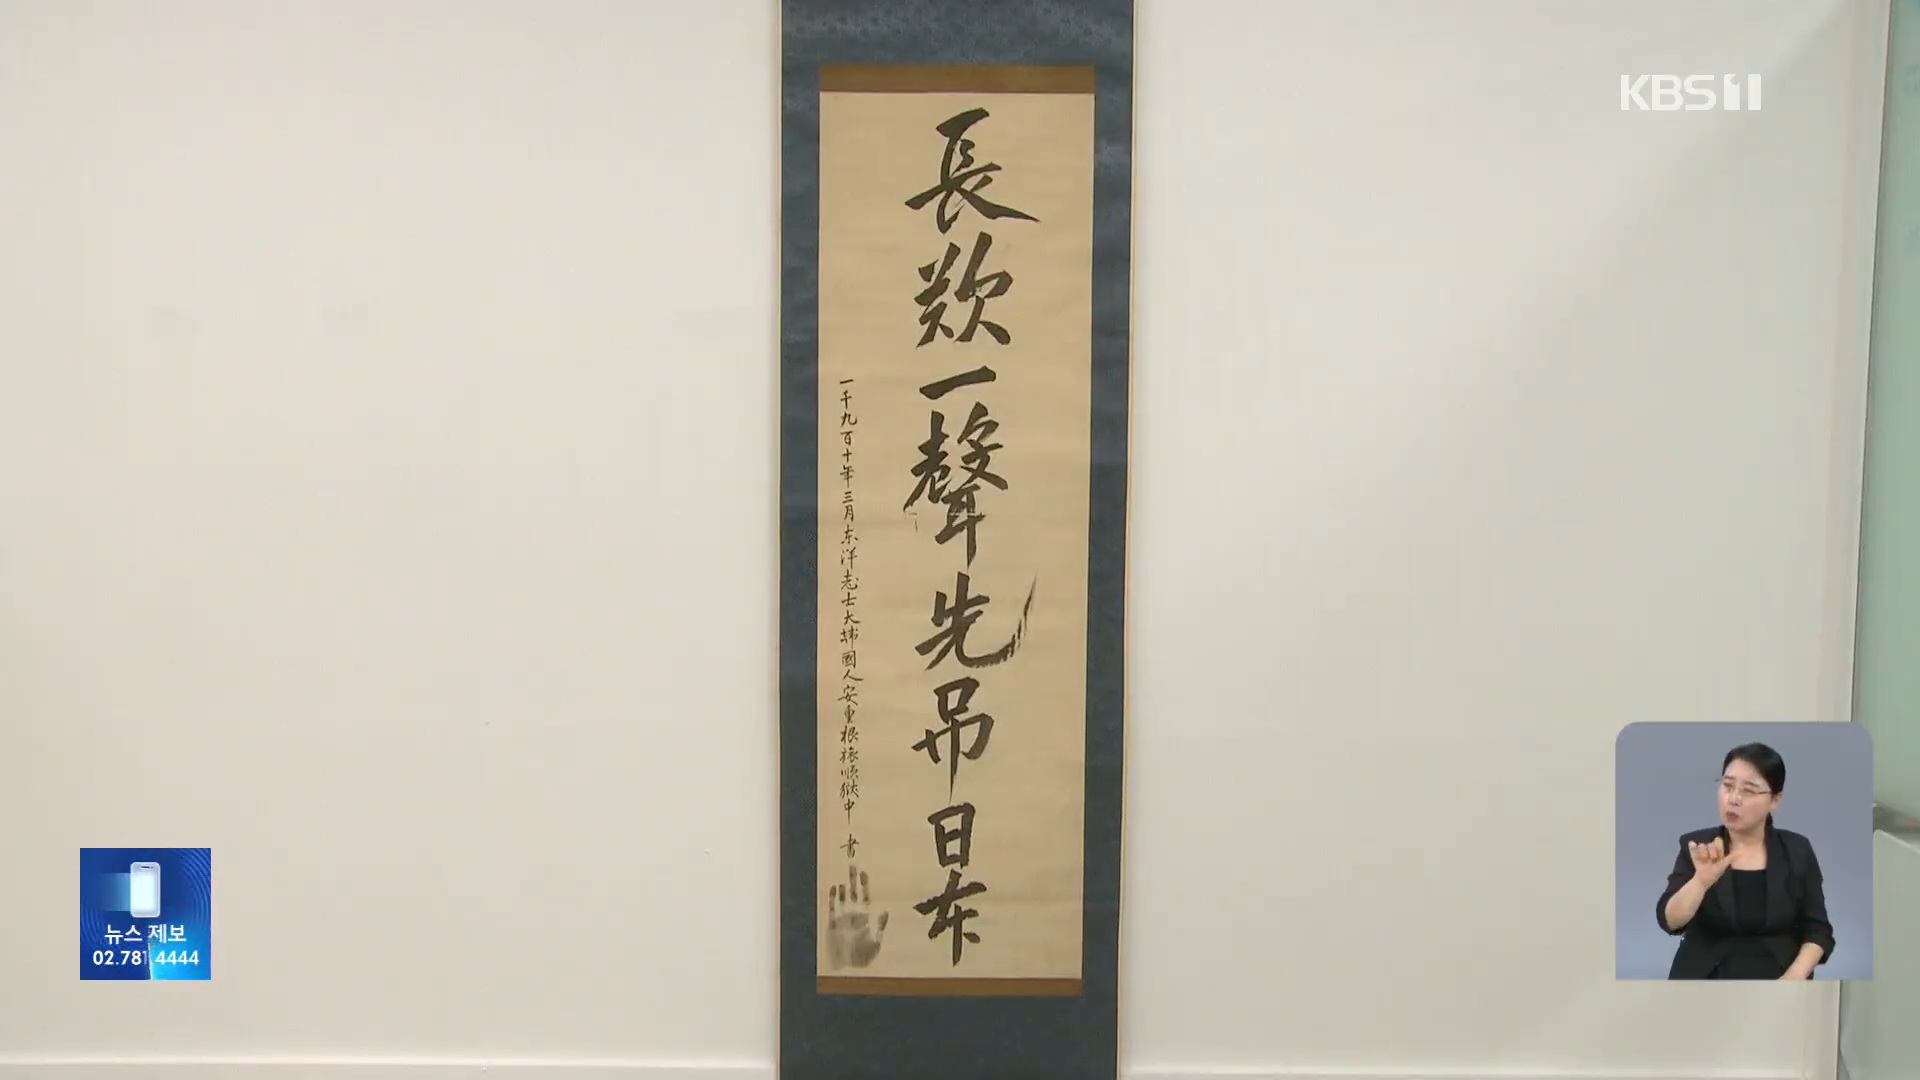 KBS1
長歎一聲先吊日本
一千九百十年三月 東洋志士大韓國人安重根 旅順獄中 書
뉴스 제보
02.781.4444